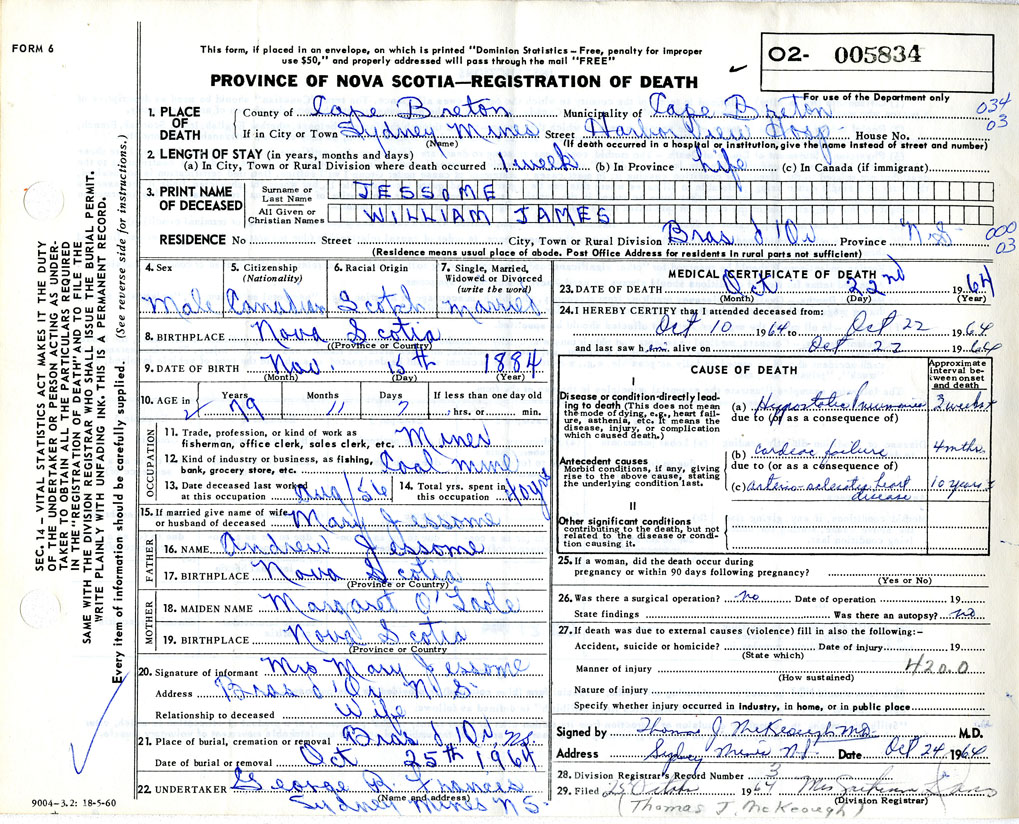 FORM 6
This form, if placed in an envelope, on which is printed "Dominion Statistics – Free, penalty for improper
use $50," and properly addressed will pass through the mail "FREE"
O2- 005834
PROVINCE OF NOVA SCOTIA—REGISTRATION OF DEATH
For use of the Department only
034
03
1. PLACE OF DEATH
County of Cape Breton Municipality of Cape Breton
If in City or Town Sydney Mines Street Harbor View Hosp. House No.
(Name) (If death occurred in a hospital or institution, give the name instead of street and number)
2. LENGTH OF STAY (in years, months and days)
(a) In City, Town or Rural Division where death occurred 1 week (b) In Province Life (c) In Canada (if immigrant)
3. PRINT NAME OF DECEASED
Surname or Last Name JESSOME
All Given or Christian Names WILLIAM JAMES
RESIDENCE No Street City, Town or Rural Division Bras d'Or Province N.S.
000
03
(Residence means usual place of abode. Post Office Address for residents in rural parts not sufficient)
4. Sex Male
5. Citizenship (Nationality) Canadian
6. Racial Origin Scotch
7. Single, Married, Widowed or Divorced (write the word) Married
8. BIRTHPLACE Nova Scotia
(Province or Country)
9. DATE OF BIRTH Nov. 15th 1884
(Month) (Day) (Year)
10. AGE in Years 79 Months 11 Days 7 If less than one day old
hrs. or min.
OCCUPATION
11. Trade, profession, or kind of work as
fisherman, office clerk, sales clerk, etc. Miner
12. Kind of industry or business, as fishing,
bank, grocery store, etc. Coal mine
13. Date deceased last worked
at this occupation Aug/56
14. Total yrs. spent in
this occupation 40 yrs
15. If married give name of wife
or husband of deceased Mary Jessome
FATHER
16. NAME Andrew Jessome
17. BIRTHPLACE Nova Scotia
(Province or Country)
MOTHER
18. MAIDEN NAME Margaret O'Toole
19. BIRTHPLACE Nova Scotia
(Province or Country
20. Signature of informant Mrs Mary Jessome
Address Bras d'Or N.S.
Relationship to deceased Wife
21. Place of burial, cremation or removal Bras d'Or N.S.
Date of burial or removal Oct 25th 1964
22. UNDERTAKER George R. Francis
(Name and address)
Sydney Mines N.S.
9004–3.2: 18-5-60
MEDICAL CERTIFICATE OF DEATH
23. DATE OF DEATH Oct 22nd 1964
(Month) (Day) (Year)
24. I HEREBY CERTIFY that I attended deceased from:
Oct 10 1964 to Oct 22 1964
and last saw him alive on Oct 22 1964
CAUSE OF DEATH
Approximate interval between onset and death
I
Disease or condition directly leading to death (This does not mean the mode of dying, e.g., heart failure, asthenia, etc. It means the disease, injury, or complication which caused death.)
(a) Hypostatic Pneumonia 3 weeks
due to (or as a consequence of)
Antecedent causes
Morbid conditions, if any, giving rise to the above cause, stating the underlying condition last.
(b) cardiac failure 4 mths.
due to (or as a consequence of)
(c) arterio-sclerotic heart disease 10 years
II
Other significant conditions
contributing to the death, but not related to the disease or condition causing it.
25. If a woman, did the death occur during
pregnancy or within 90 days following pregnancy?
(Yes or No)
26. Was there a surgical operation? no Date of operation 19
State findings Was there an autopsy? no
27. If death was due to external causes (violence) fill in also the following:–
Accident, suicide or homicide? Date of injury 19
(State which)
Manner of injury 420.0
(How sustained)
Nature of injury
Specify whether injury occurred in industry, in home, or in public place
Signed by Thomas J. McKeough M.D. M.D.
Address Sydney Mines N.S. Date Oct 24 1964
28. Division Registrar's Record Number 3
29. Filed 25 October 1964 Mrs
(Division Registrar)
(Thomas J. McKeough)
SEC. 14 – VITAL STATISTICS ACT MAKES IT THE DUTY
OF THE UNDERTAKER OR PERSON ACTING AS UNDER-
TAKER TO OBTAIN ALL THE PARTICULARS REQUIRED
IN THE "REGISTRATION OF DEATH" AND TO FILE THE
SAME WITH THE DIVISION REGISTRAR WHO SHALL ISSUE THE BURIAL PERMIT.
WRITE PLAINLY WITH UNFADING INK. THIS IS A PERMANENT RECORD.
Every item of information should be carefully supplied. (See reverse side for instructions.)